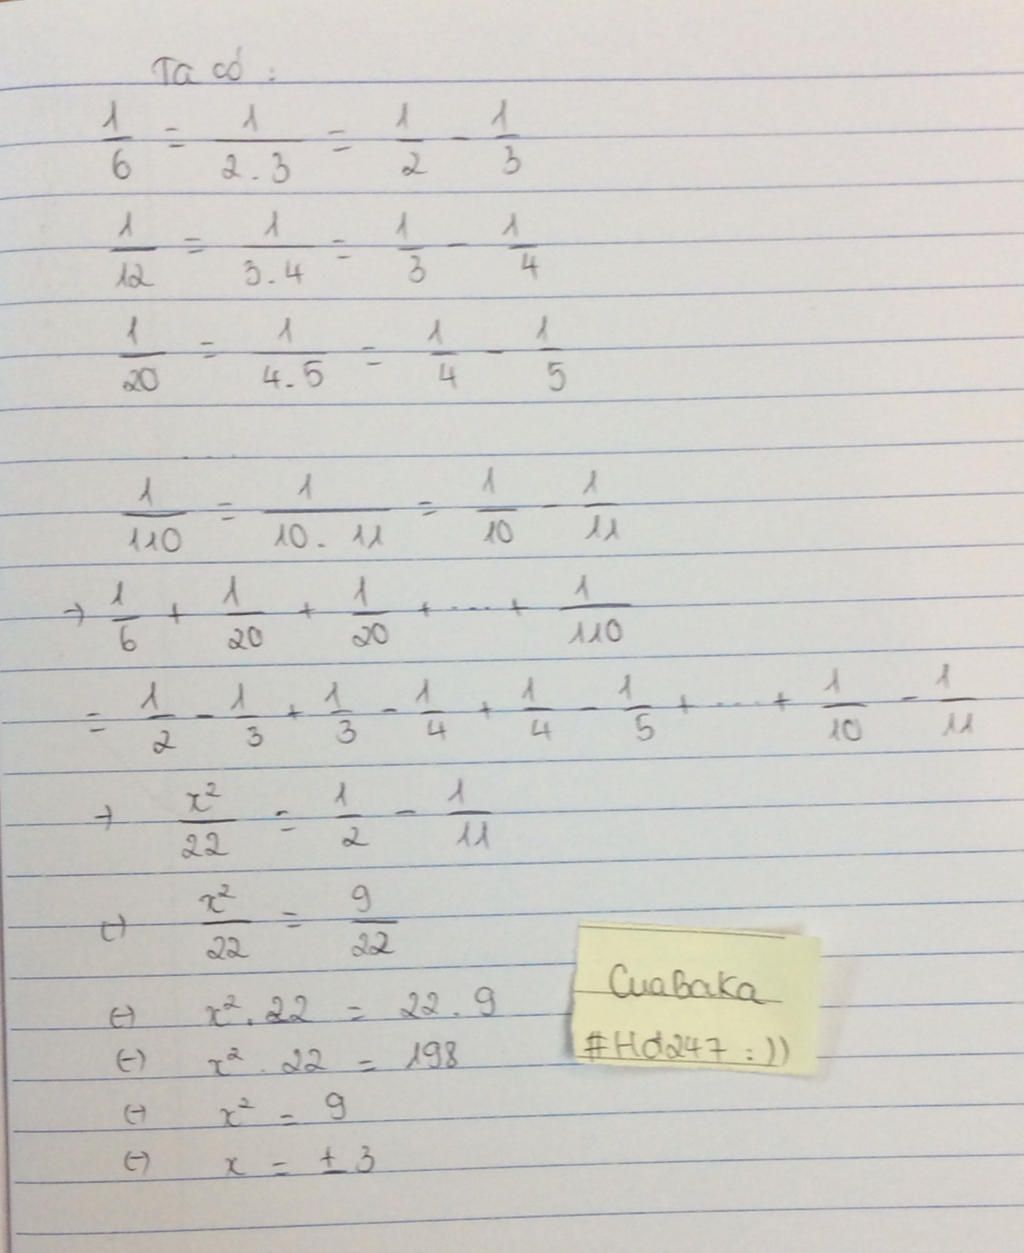 Ta có:
1/6 = 1/2.3 = 1/2 - 1/3
1/12 = 1/3.4 = 1/3 - 1/4
1/20 = 1/4.5 = 1/4 - 1/5
.....
1/110 = 1/10.11 = 1/10 - 1/11
→ 1/6 + 1/20 + 1/20 + .... + 1/110
= 1/2 - 1/3 + 1/3 - 1/4 + 1/4 - 1/5 + .... + 1/10 - 1/11
→ x²/22 = 1/2 - 1/11
(-) x²/22 = 9/22
(-) x².22 = 22.9
(-) x².22 = 198
(-) x² = 9
(-) x = ±3
CuaBaKa
#Hd247 :))